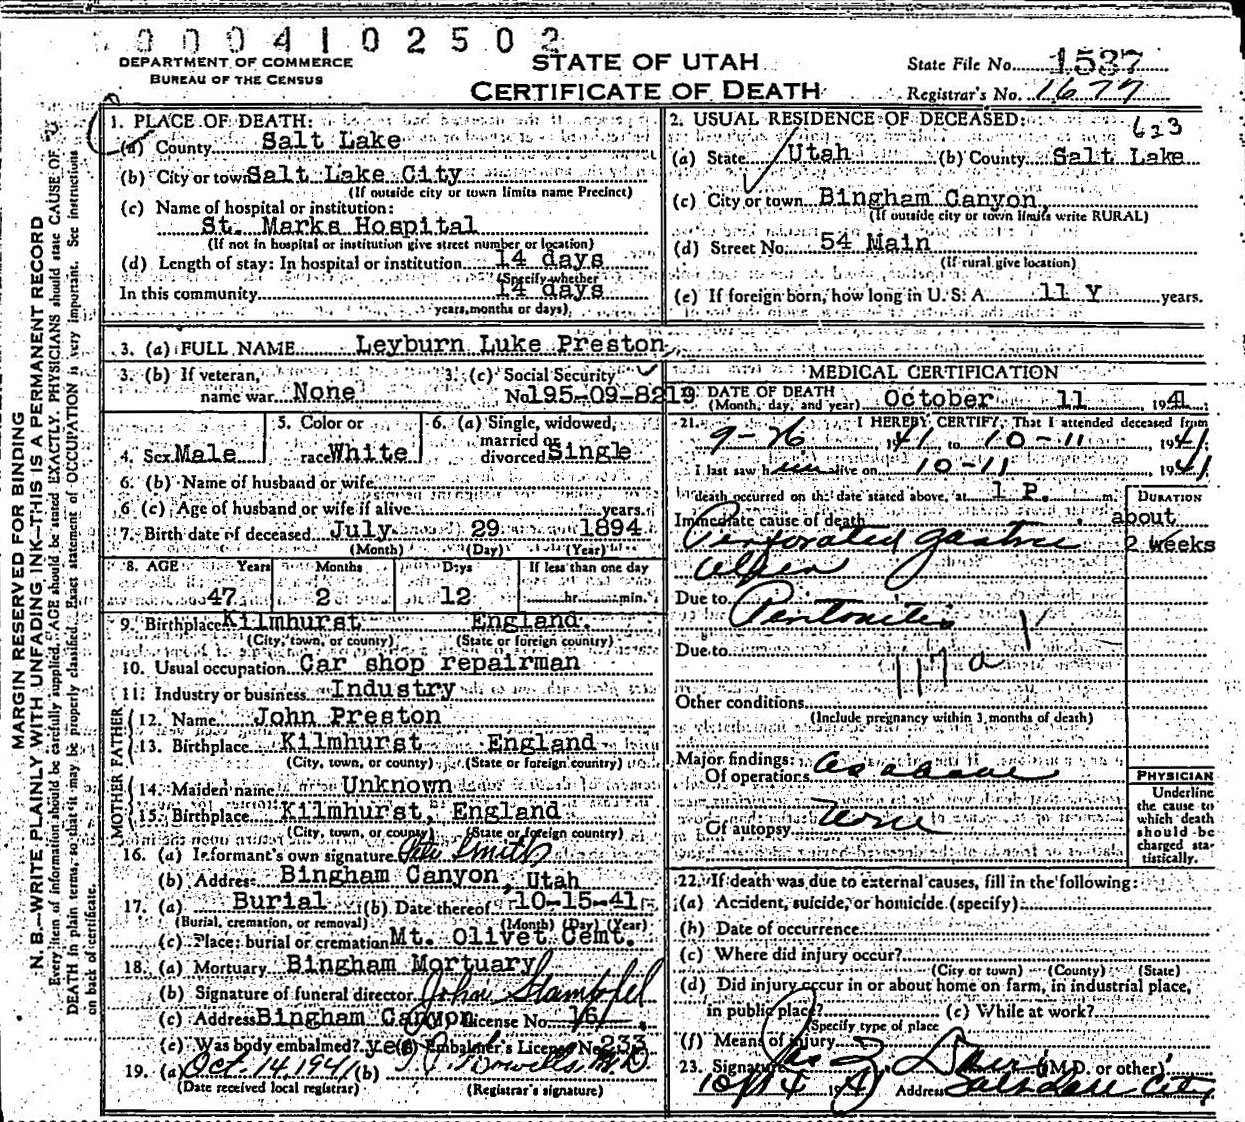 0004102502
DEPARTMENT OF COMMERCE
BUREAU OF THE CENSUS
STATE OF UTAH
CERTIFICATE OF DEATH
State File No. 1537
Registrar's No. 1677
MARGIN RESERVED FOR BINDING
N. B.—WRITE PLAINLY WITH UNFADING INK—THIS IS A PERMANENT RECORD
Every item of information should be carefully supplied. AGE should be stated EXACTLY. PHYSICIANS should state CAUSE OF
DEATH in plain terms, so that it may be properly classified. Exact statement of OCCUPATION is very important. See instructions
on back of certificate.
1. PLACE OF DEATH:
(a) County Salt Lake
(b) City or town Salt Lake City
(If outside city or town limits name Precinct)
(c) Name of hospital or institution:
St. Marks Hospital
(If not in hospital or institution give street number or location)
(d) Length of stay: In hospital or institution 14 days
(Specify whether
In this community 14 days
years, months or days)
2. USUAL RESIDENCE OF DECEASED:
623
(a) State Utah (b) County Salt Lake
(c) City or town Bingham Canyon
(If outside city or town limits write RURAL)
(d) Street No. 54 Main
(If rural give location)
(e) If foreign born, how long in U. S. A. 11 Y years.
3. (a) FULL NAME Leyburn Luke Preston
3. (b) If veteran, name war None
3. (c) Social Security No. 195-09-8219
4. Sex Male
5. Color or race White
6. (a) Single, widowed, married or divorced Single
6. (b) Name of husband or wife
6 (c) Age of husband or wife if alive years.
7. Birth date of deceased July 29 1894
(Month) (Day) (Year)
8. AGE Years Months Days If less than one day
47 2 12 hr. min.
9. Birthplace Kilmhurst England.
(City, town, or county) (State or foreign country)
10. Usual occupation Car shop repairman
11. Industry or business Industry
FATHER
12. Name John Preston
13. Birthplace Kilmhurst England
(City, town, or county) (State or foreign country)
MOTHER
14. Maiden name Unknown
15. Birthplace Kilmhurst, England
(City, town, or county) (State or foreign country)
16. (a) Informant's own signature Pete Smith
(b) Address Bingham Canyon, Utah
17. (a) Burial (b) Date thereof 10-15-41
(Burial, cremation, or removal) (Month) (Day) (Year)
(c) Place: burial or cremation Mt. Olivet Cemt.
18. (a) Mortuary Bingham Mortuary
(b) Signature of funeral director John Stampfel
(c) Address Bingham Canyon License No. 161
(e) Was body embalmed? yes Embalmer's License No. 233
19. (a) Oct. 14, 1941 (b) M.D.
(Date received local registrar) (Registrar's signature)
MEDICAL CERTIFICATION
DATE OF DEATH
(Month, day, and year) October 11 1941
21. I HEREBY CERTIFY, That I attended deceased from
9-26 1941 to 10-11 1941
I last saw him alive on 10-11 1941
death occurred on the date stated above, at 1 P. m.
DURATION
Immediate cause of death about
Perforated gastric 2 weeks
ulcer
Due to Peritonitis
Due to
117a
Other conditions
(Include pregnancy within 3 months of death)
Major findings:
Of operations as above
Of autopsy None
PHYSICIAN
Underline
the cause to
which death
should be
charged sta-
tistically.
22. If death was due to external causes, fill in the following:
(a) Accident, suicide, or homicide (specify)
(b) Date of occurrence
(c) Where did injury occur?
(City or town) (County) (State)
(d) Did injury occur in or about home on farm, in industrial place,
in public place? (e) While at work?
(Specify type of place
(f) Means of injury
23. Signature (M.D. or other)
10/14 1941 Address Salt Lake City